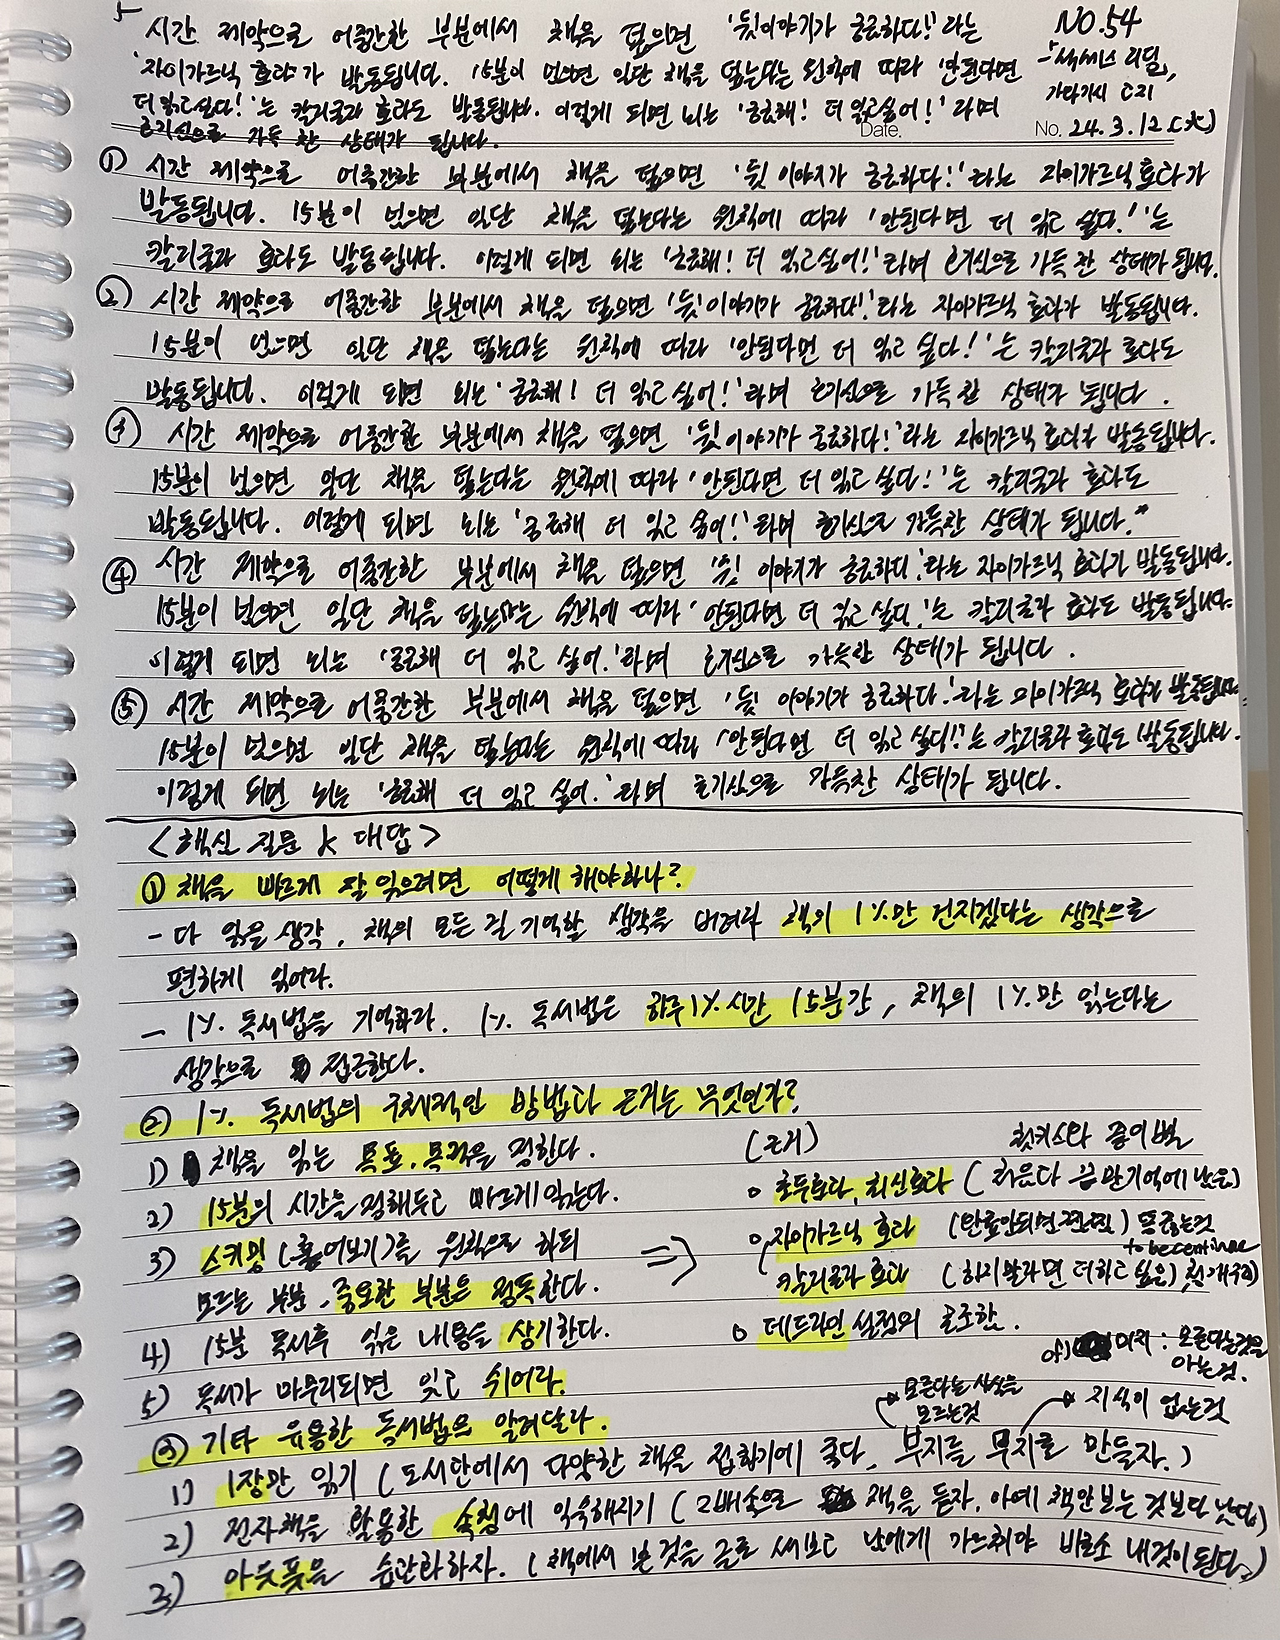 시간 제약으로 어중간한 부분에서 책을 덮으면 '뒷이야기가 궁금하다!'라는
NO.54
'자이가르닉 효과'가 발동됩니다. 15분이 넘으면 일단 책을 덮는다는 원칙에 따라 '안된다면
「석세스 리딩」
더 읽고 싶다!'는 칼리굴라 효과도 발동됩니다. 이렇게 되면 뇌는 '궁금해! 더 읽고 싶어!'라며
호기심으로 가득 찬 상태가 됩니다.
Date.
No. 24.3.12(火)
① 시간 제약으로 어중간한 부분에서 책을 덮으면 '뒷이야기가 궁금하다!'라는 자이가르닉 효과가
발동됩니다. 15분이 넘으면 일단 책을 덮는다는 원칙에 따라 '안된다면 더 읽고 싶다!'는
칼리굴라 효과도 발동됩니다. 이렇게 되면 뇌는 '궁금해! 더 읽고 싶어!'라며 호기심으로 가득 찬 상태가 됩니다.
② 시간 제약으로 어중간한 부분에서 책을 덮으면 '뒷이야기가 궁금하다!'라는 자이가르닉 효과가 발동됩니다.
15분이 넘으면 일단 책을 덮는다는 원칙에 따라 '안된다면 더 읽고 싶다!'는 칼리굴라 효과도
발동됩니다. 이렇게 되면 뇌는 '궁금해! 더 읽고 싶어!'라며 호기심으로 가득 찬 상태가 됩니다.
③ 시간 제약으로 어중간한 부분에서 책을 덮으면 '뒷이야기가 궁금하다!'라는 자이가르닉 효과가 발동됩니다.
15분이 넘으면 일단 책을 덮는다는 원칙에 따라 '안된다면 더 읽고 싶다!'는 칼리굴라 효과도
발동됩니다. 이렇게 되면 뇌는 '궁금해 더 읽고 싶어!'라며 호기심으로 가득찬 상태가 됩니다.
④ 시간 제약으로 어중간한 부분에서 책을 덮으면 '뒷 이야기가 궁금하다!'라는 자이가르닉 효과가 발동됩니다.
15분이 넘으면 일단 책을 덮는다는 원칙에 따라 '안된다면 더 읽고 싶다!'는 칼리굴라 효과도 발동됩니다.
이렇게 되면 뇌는 '궁금해 더 읽고 싶어.'라며 호기심으로 가득찬 상태가 됩니다.
⑤ 시간 제약으로 어중간한 부분에서 책을 덮으면 '뒷 이야기가 궁금하다!'라는 자이가르닉 효과가 발동됩니다.
15분이 넘으면 일단 책을 덮는다는 원칙에 따라 '안된다면 더 읽고 싶다!'는 칼리굴라 효과도 발동됩니다.
이렇게 되면 뇌는 '궁금해 더 읽고 싶어.'라며 호기심으로 가득찬 상태가 됩니다.
<핵심 질문 & 대답>
① 책을 빠르게 잘 읽으려면 어떻게 해야하나?
- 다 읽을 생각, 책의 모든 걸 기억할 생각을 버려라 책의 1%만 건지겠다는 생각으로
편하게 읽어라.
- 1% 독서법을 기억하라. 1% 독서법은 하루 1% 시간 15분간, 책의 1%만 읽는다는
생각으로 접근한다.
② 1% 독서법의 구체적인 방법과 근거는 무엇인가?
1) 책을 읽는 목표, 목적을 정한다.
2) 15분의 시간을 정해두고 빠르게 읽는다.
3) 스키밍(훑어보기)를 원칙으로 하되
모르는 부분, 중요한 부분은 정독한다.
4) 15분 독서후 읽은 내용을 상기한다.
5) 독서가 마무리되면 잊고 쉬어라.
⇒
(근거) 첫키스와 줄이별
○ 초두효과, 최신효과 (처음과 끝만 기억에 남음)
○ 자이가르닉 효과 (완료안되면 찜찜) 끊는것
to be continue
칼리굴라 효과 (하지말라면 더하고 싶은)
○ 데드라인 설정의 궁극한.
미지 : 모른다는것을
아는것.
모른다는 사실을
모르는것
지식이 없는것
③ 기타 유용한 독서법은 알려달라.
1) 1장만 읽기 (도서관에서 다양한 책을 접하기에 좋다. 부지를 무지로 만들자.)
2) 전자책을 활용한 속청에 익숙해지기 (2배속으로 책을 듣자. 아예 책안보는 것보다 낫다.)
3) 아웃풋을 습관화하자. (책에서 본 것을 글로 써보고 남에게 가르쳐야 비로소 내것이 된다.)